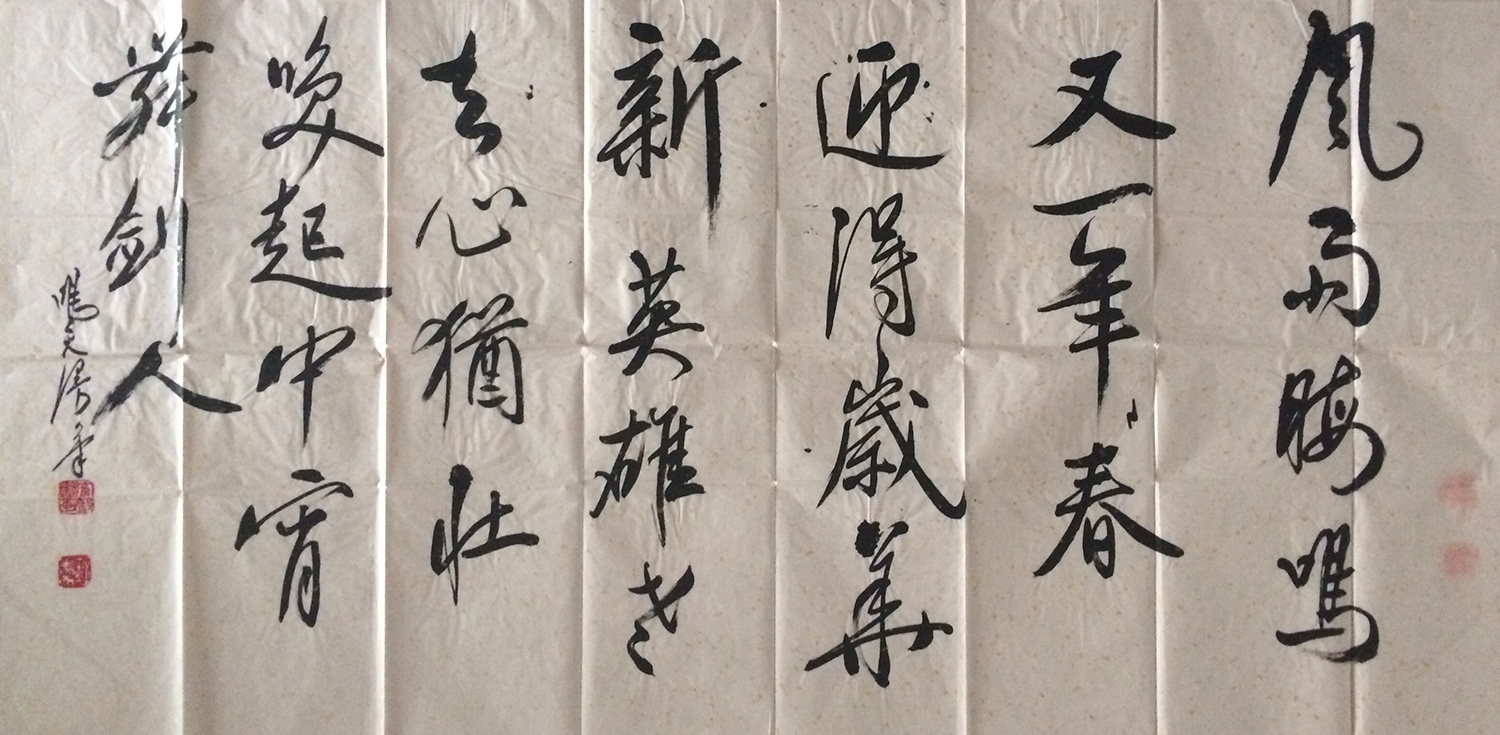 風雨晦鳴
又一年春
迎得歲華
新英雄老
去心猶壯
喚起中宵
舞劍人